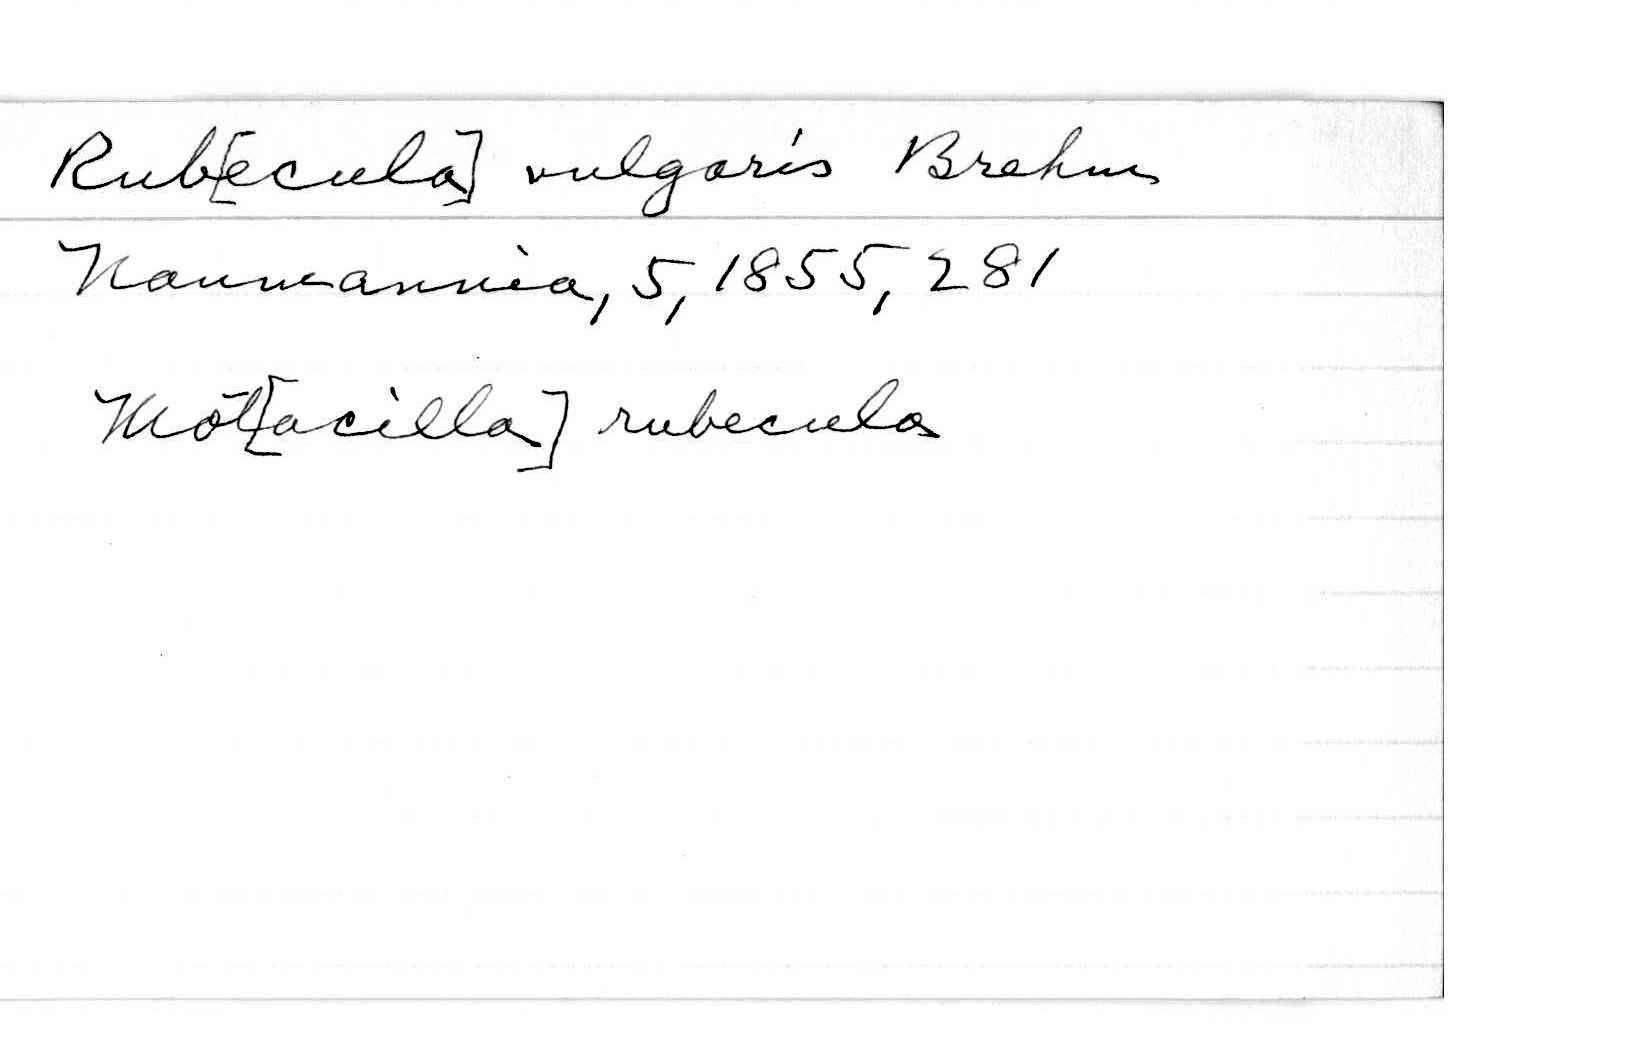 Rub[ecula] vulgaris Brehm
Naumannia, 5, 1855, 281
Mot[acilla] rubecula